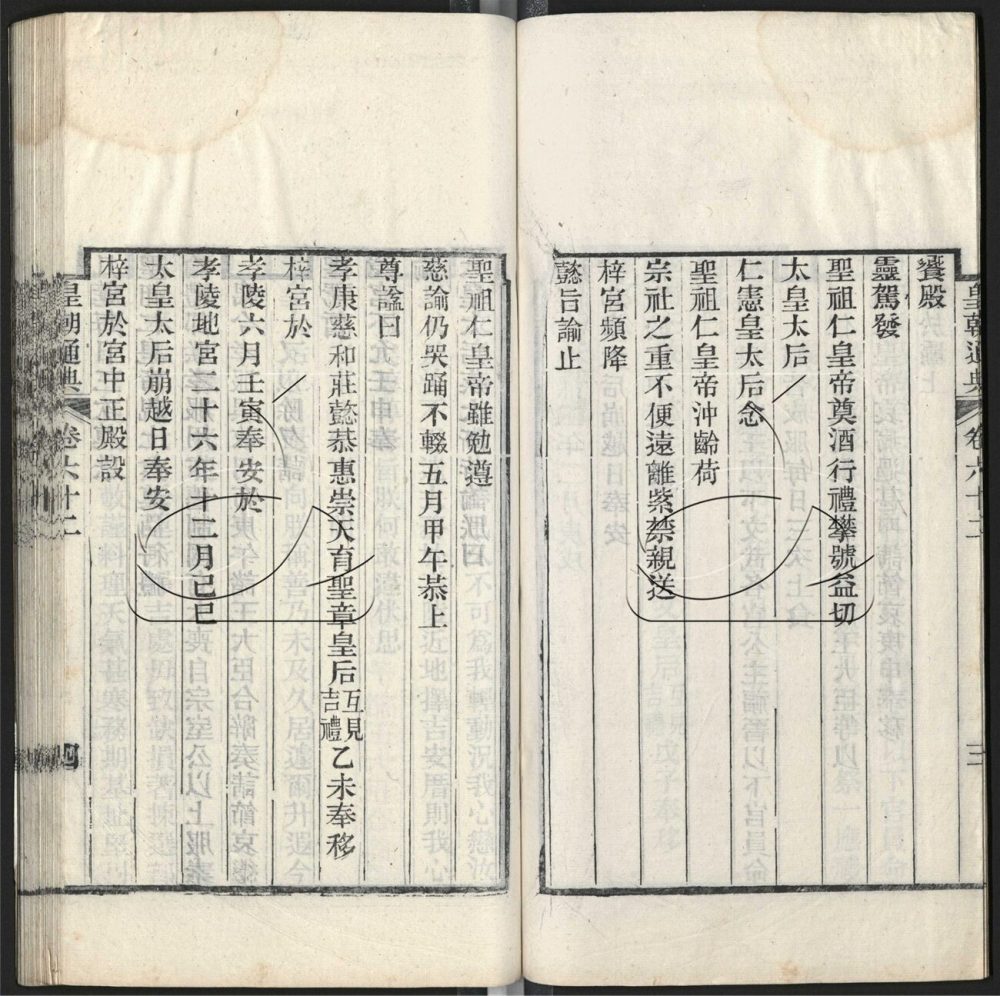 皇朝通典 卷六十二 三
饗殿
靈駕發
聖祖仁皇帝奠酒行禮攀號益切
太皇太后
仁憲皇太后念
聖祖仁皇帝沖齡荷
宗社之重不便遠離紫禁親送
梓宮頻降
懿旨諭止
聖祖仁皇帝雖勉遵
慈諭仍哭踊不輟五月甲午恭上
尊諡曰
孝康慈和莊懿恭惠崇天育聖章皇后互見吉禮乙未奉移
梓宮於
孝陵六月壬寅奉安於
孝陵地宮二十六年十二月己巳
太皇太后崩越日奉安
梓宮於宮中正殿設
皇朝通典 卷六十二 四